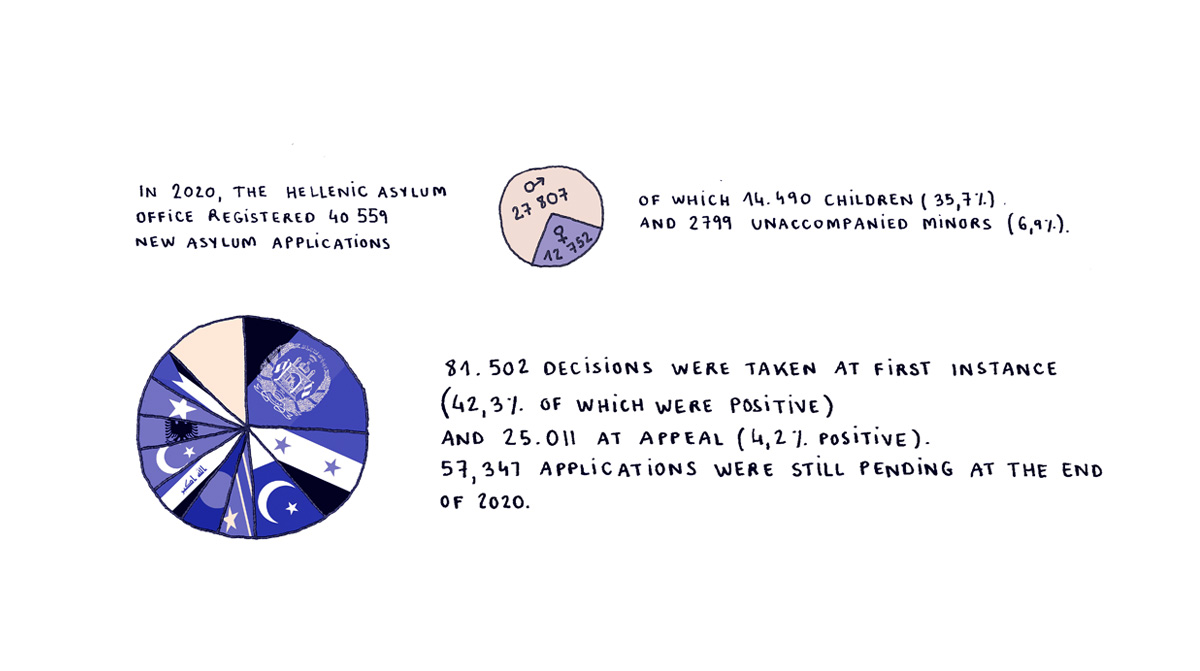 IN 2020, THE HELLENIC ASYLUM
OFFICE REGISTERED 40 559
NEW ASYLUM APPLICATIONS
♂
27 807
♀
12 752
OF WHICH 14.490 CHILDREN (35,7%).
AND 2799 UNACCOMPANIED MINORS (6,9%).
81.502 DECISIONS WERE TAKEN AT FIRST INSTANCE
(42,3% OF WHICH WERE POSITIVE)
AND 25.011 AT APPEAL (4,2% POSITIVE).
57,347 APPLICATIONS WERE STILL PENDING AT THE END
OF 2020.